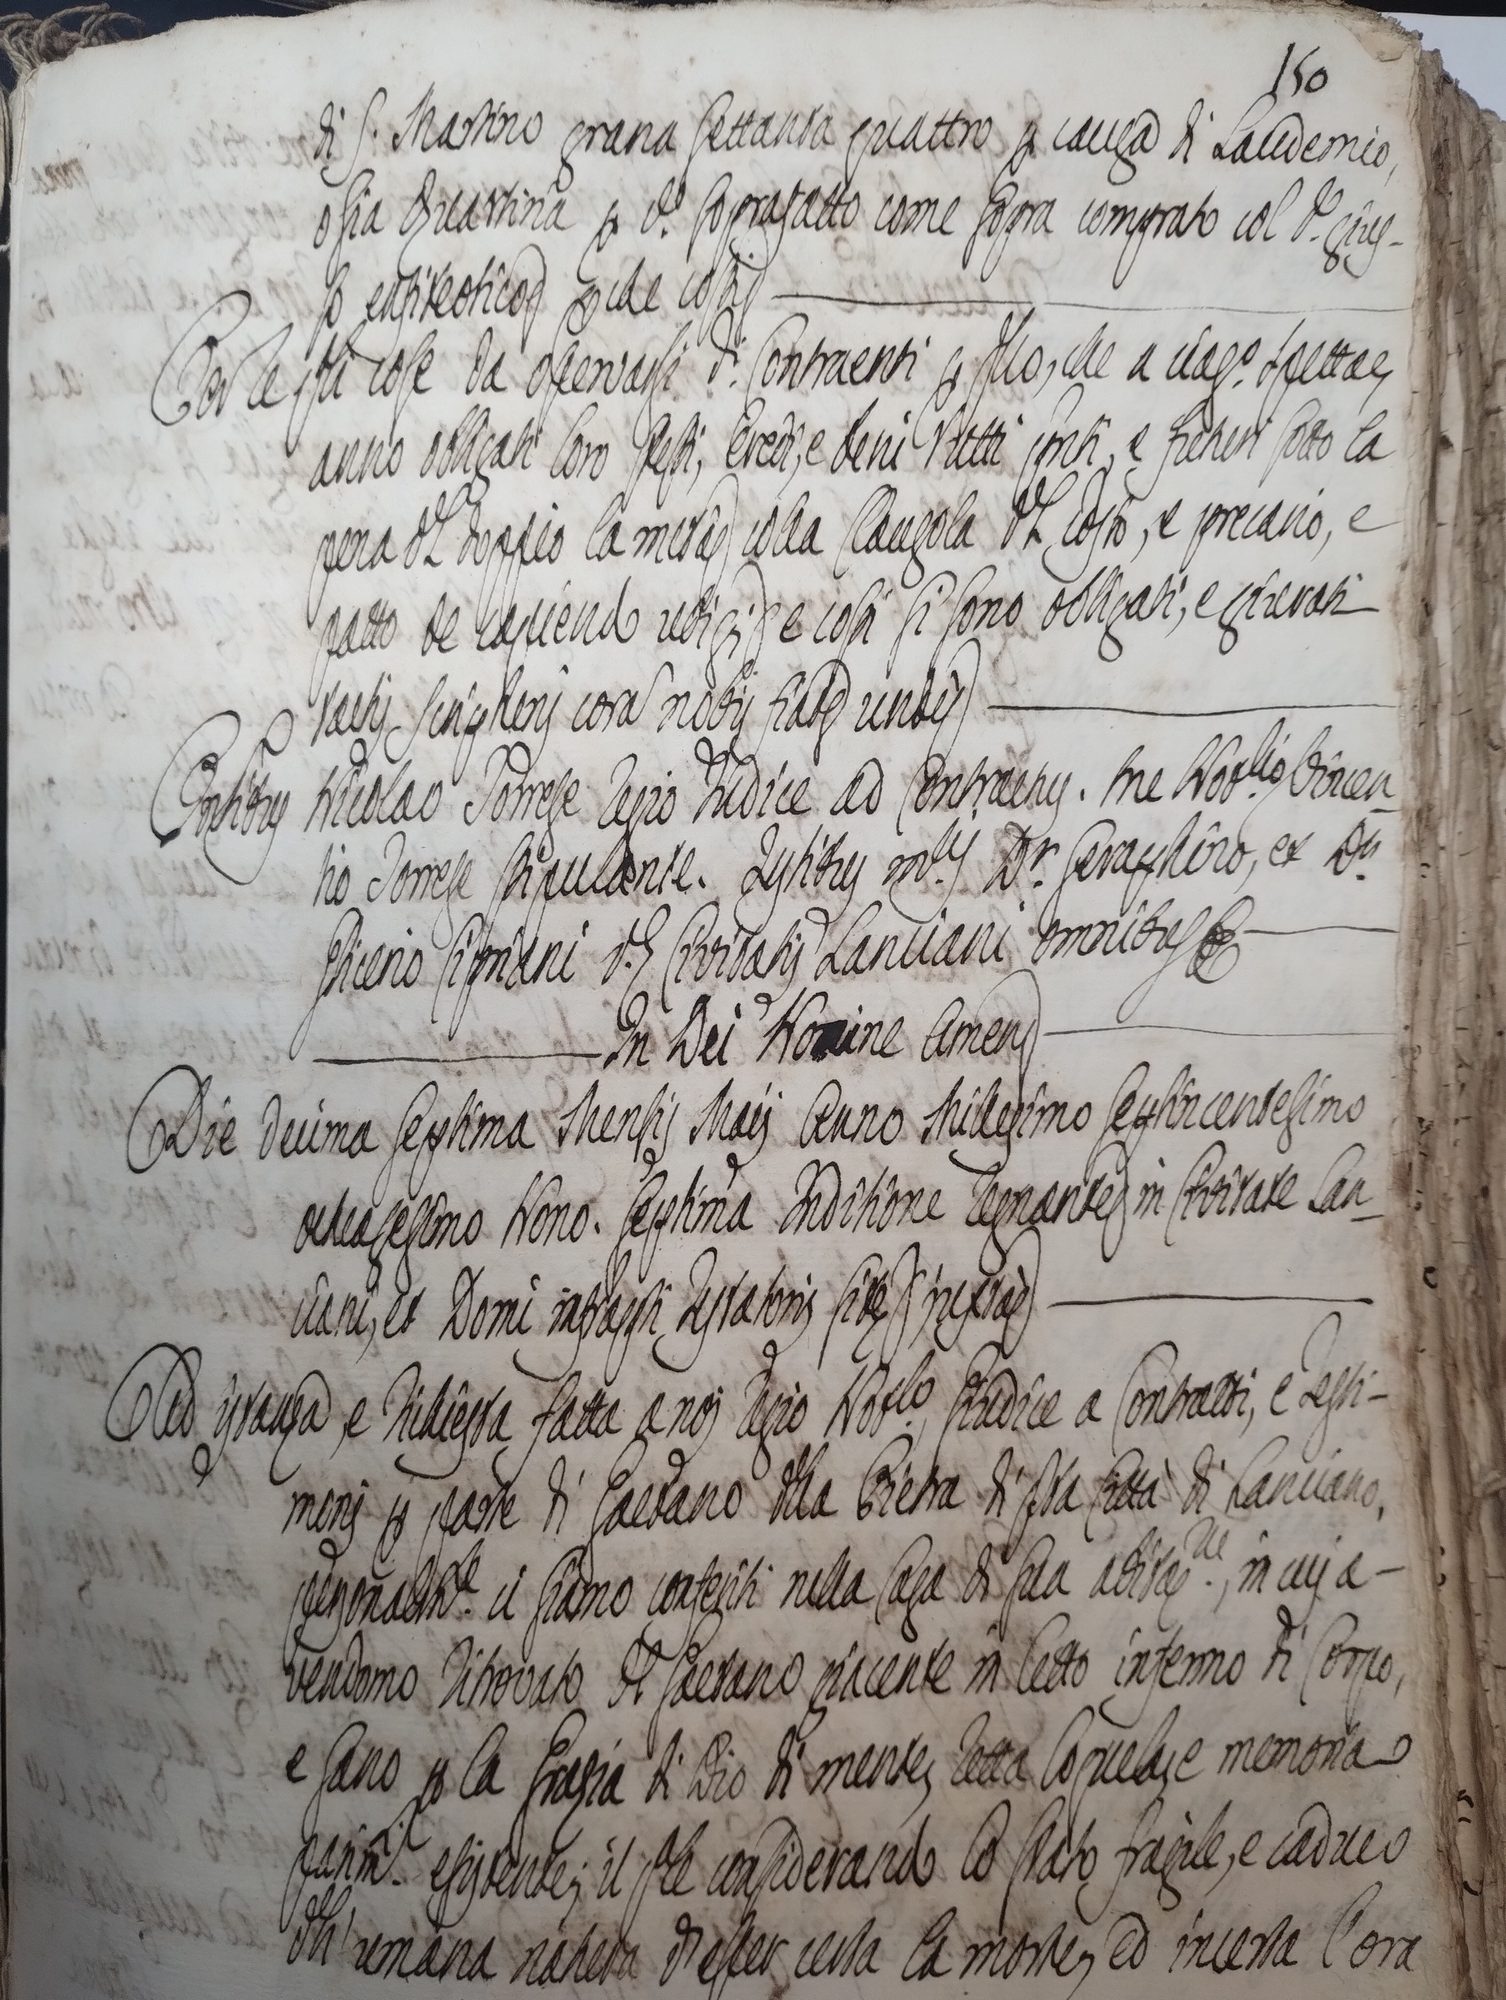 150
di S. Martino grana settanta quattro p causa di Laudemio,
o sia Quartina p d.o soprafatto come sopra comprato col d.o giu-
so enfiteotico che così
Per le q̃li cose da osservarsi d.i Contraenti p q̃llo, che a ciasc.o spetta,
anno obligati loro stessi, Eredi, e beni tutti p̃nti, e futuri sotto la
pena del doppio la metà colla Clausola del Costit.o, e precario, e
patto de capiendo e così si sono obligati, e giurati
tactis Scripturis coram nobis
P̃ntibus Nicolao Torrese Regio Judice ad Contractus. me Not.rio Vincen-
tio Torrese stipulante. Testibus m.cis D.r Seraphino, et D.n
Glicerio Cipriani d.æ Civitatis Lanciani omnibus
In Dei Nomine Amen
Die decima septima Mensis Maij Anno Millesimo septincentesimo
octuagesimo Nono. Septima Inditione Regnante in Civitate Lan-
ciani, et Domi infr̃ascti Testatoris sitæ
Ad istanza, e richiesta fatta a noi Regio Not.ro, Giudice a Contratti, e Testi-
monj p parte di Gaetano della Pietra di q̃sta Città di Lanciano,
personalm.te ci siamo conferiti nella Casa di sua abitaz.ne, in cui a-
vendomo ritrovato d.o Gaetano giacente in letto infermo di Corpo,
e sano p la Grazia di Dio di mente, retta loquela, e memoria
parim.ti esistente; il q̃le considerando lo stato fragile, e caduco
dell' umana natura d'esser certa la morte, ed incerta l'ora